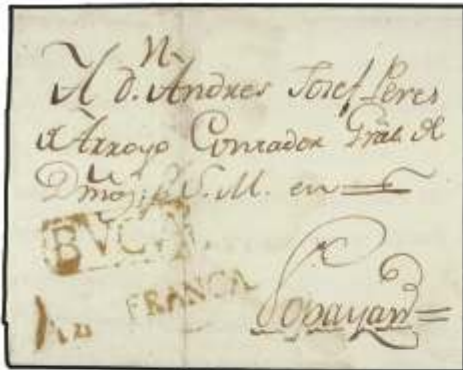 A d.n Andres Josef Peres
d Arroyo Contador Gral. d
Dmos. p. S. M. en
BVGA
FRANCA
Popayan=